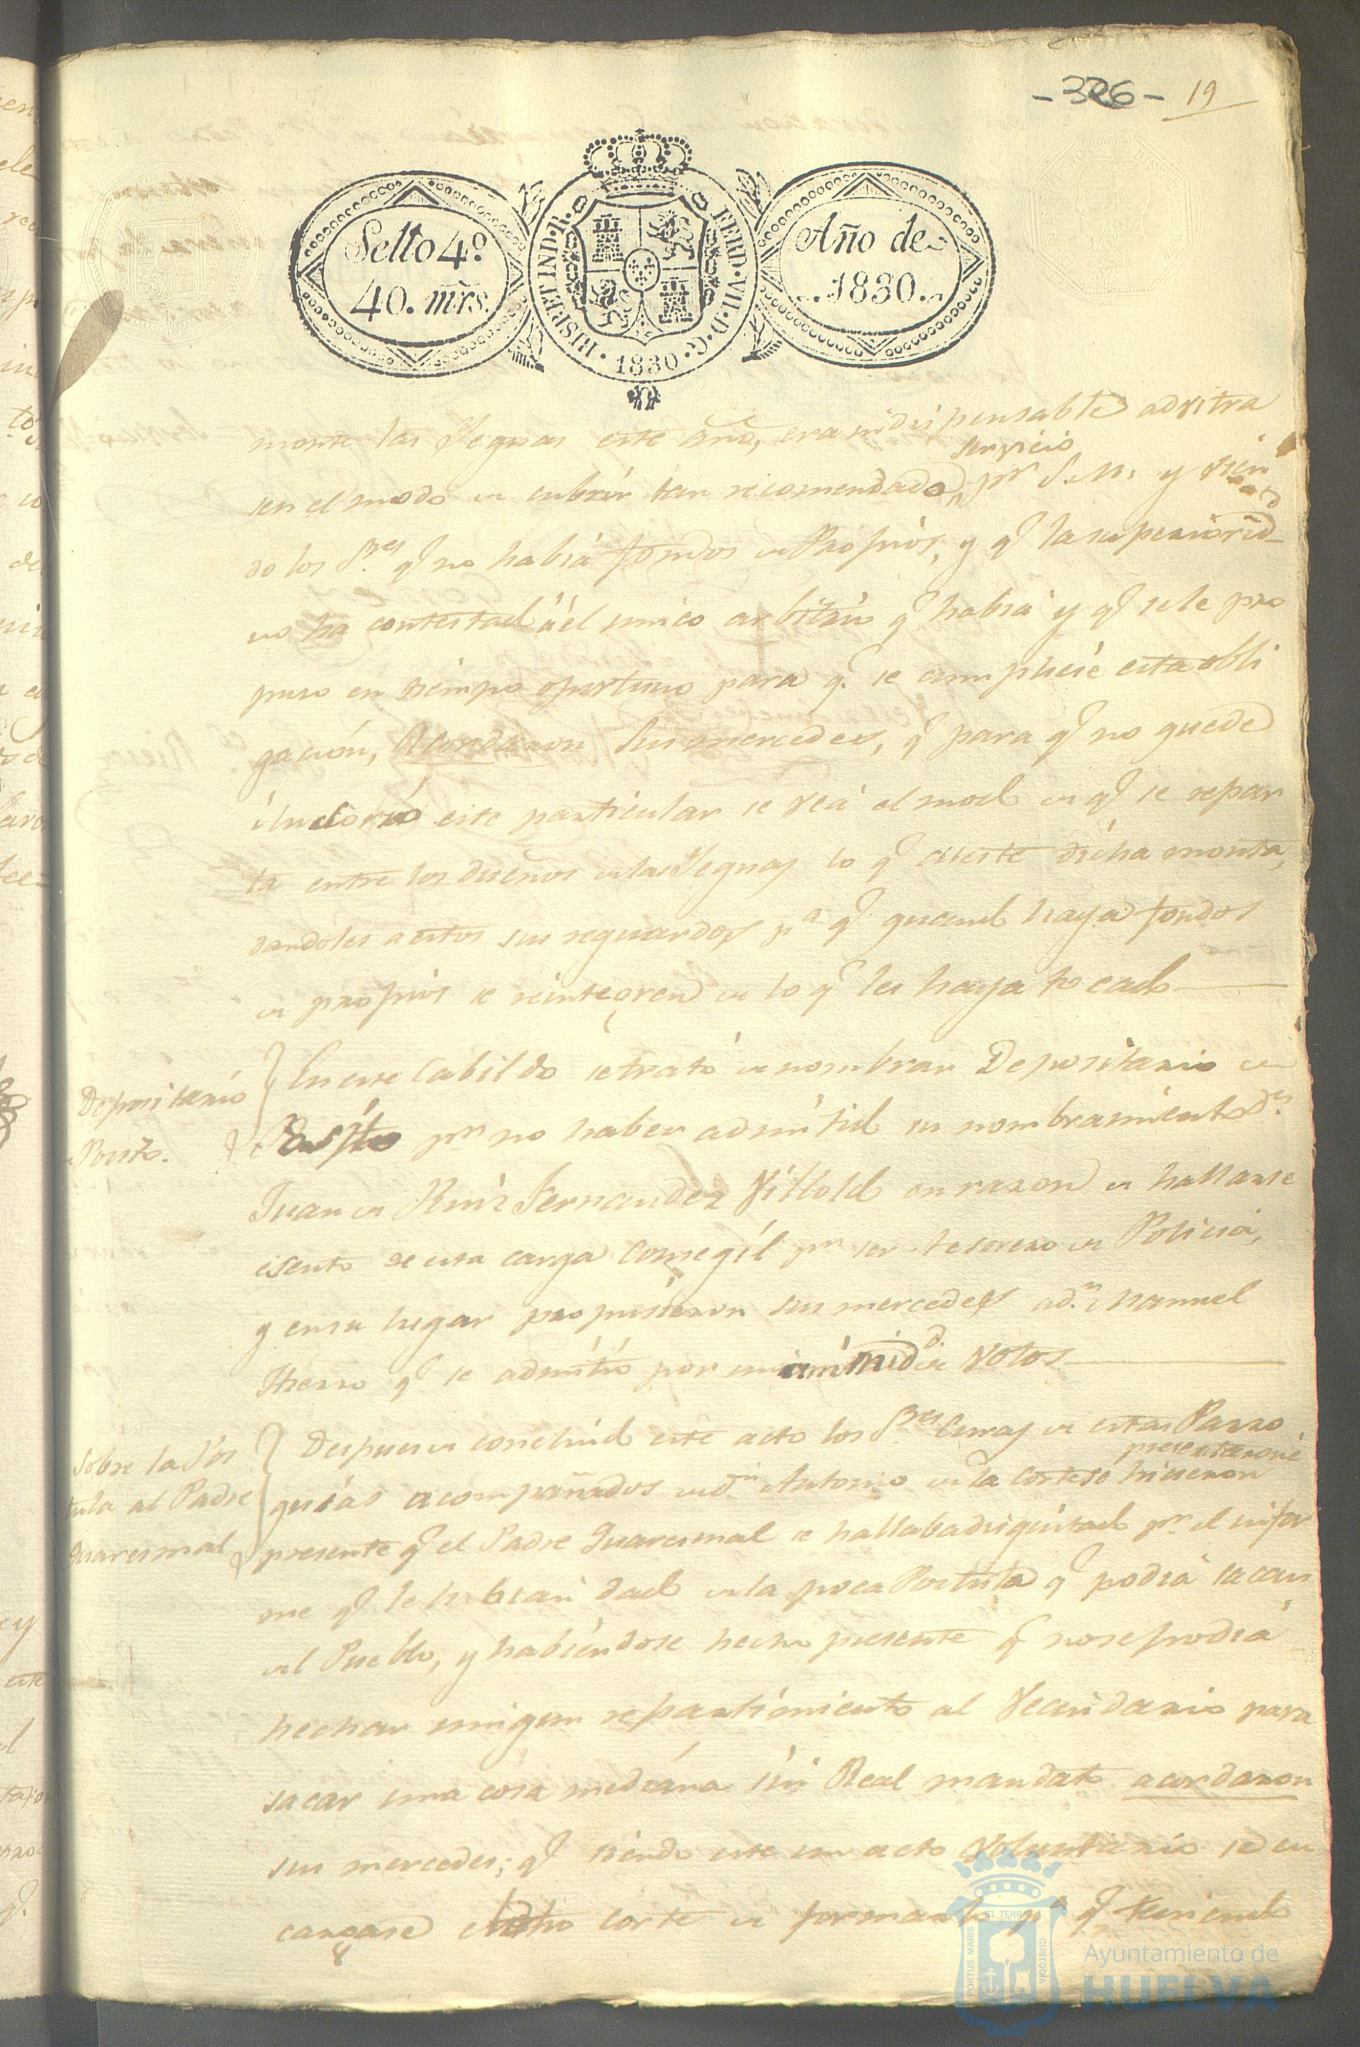 -326- 19
Sello 4º
40. mrs.
HISP. ET IND. R. FERD. VII. D. G. 1830
Año de
1830.
monte las Yeguas este año, era indispensable advitra
servicio
sen el modo de cubrir tan recomendado pr S.M. y vien
do los Sres qe no habiá fondos de Propios, y qe la superioridd
no ha contestado al unico arbitrio qe habiá y qe se le pro
puso en tiempo oportuno para qe se cumpliese esta obli
gación, Acordaron Sus mercedes, qe para qe no quede
ilusorio este particular se veá el modo de qe se repar
ta entre los dueños de las Yeguas lo qe cueste dicha monta,
dandoles a estos sus reguardos pa qe quando haya fondos
de propios se reintegren de lo qe les haya tocado
Depositario
de Posito.
En este Cabildo se trató de nombrar Depositario de
Posito pr no haber admitido su nombramiento Dn
Juan de Ruiz Fernandez Villoldo en razon de hallarse
esento de esta carga Consegil pr ser tesorero de Policiá,
y en su lugar propusieron sus mercedes a dn Manuel
qe se admitió por unanimidd de votos
Sobre la Pos
tula al Padre
Quaresmal
Despues de concluido este acto los Sres Curas de estas Parro
presentaron é
quias acompañados de dn Antonio de la Corte se hicieron
presente qe el Padre Quaresmal se hallaba disgustado pr el infor
me qe le habian dado de la poca Postula qe podiá sacar
del Pueblo, y habiendose hecho presente qe no se podiá
hechar ningun repartimiento al Vecindario para
sacar una cosa mediana sin Real mandato acordaron
sus mercedes; qe siendo este un acto voluntario se en
cargase dicho Corte de formarlo pa qe teniendo
PORTUS MARIS ET TERRAE CUSTODIA
Ayuntamiento de
HUELVA